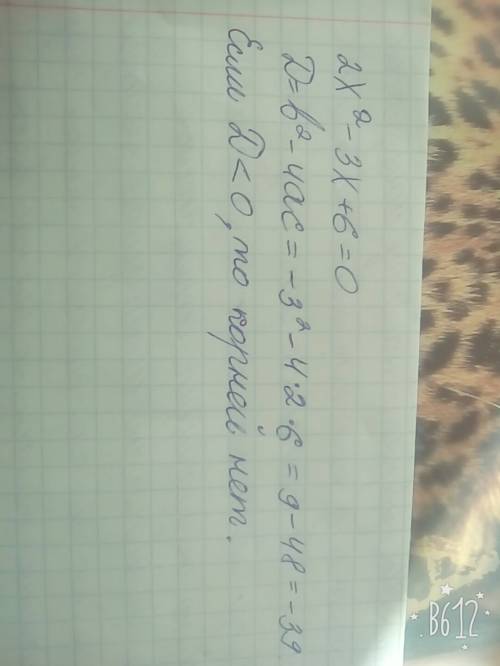 2x² - 3x + 6 = 0
D = b² - 4ac = -3² - 4·2·6 = 9 - 48 = -39
Если D < 0, то корней нет.
B612